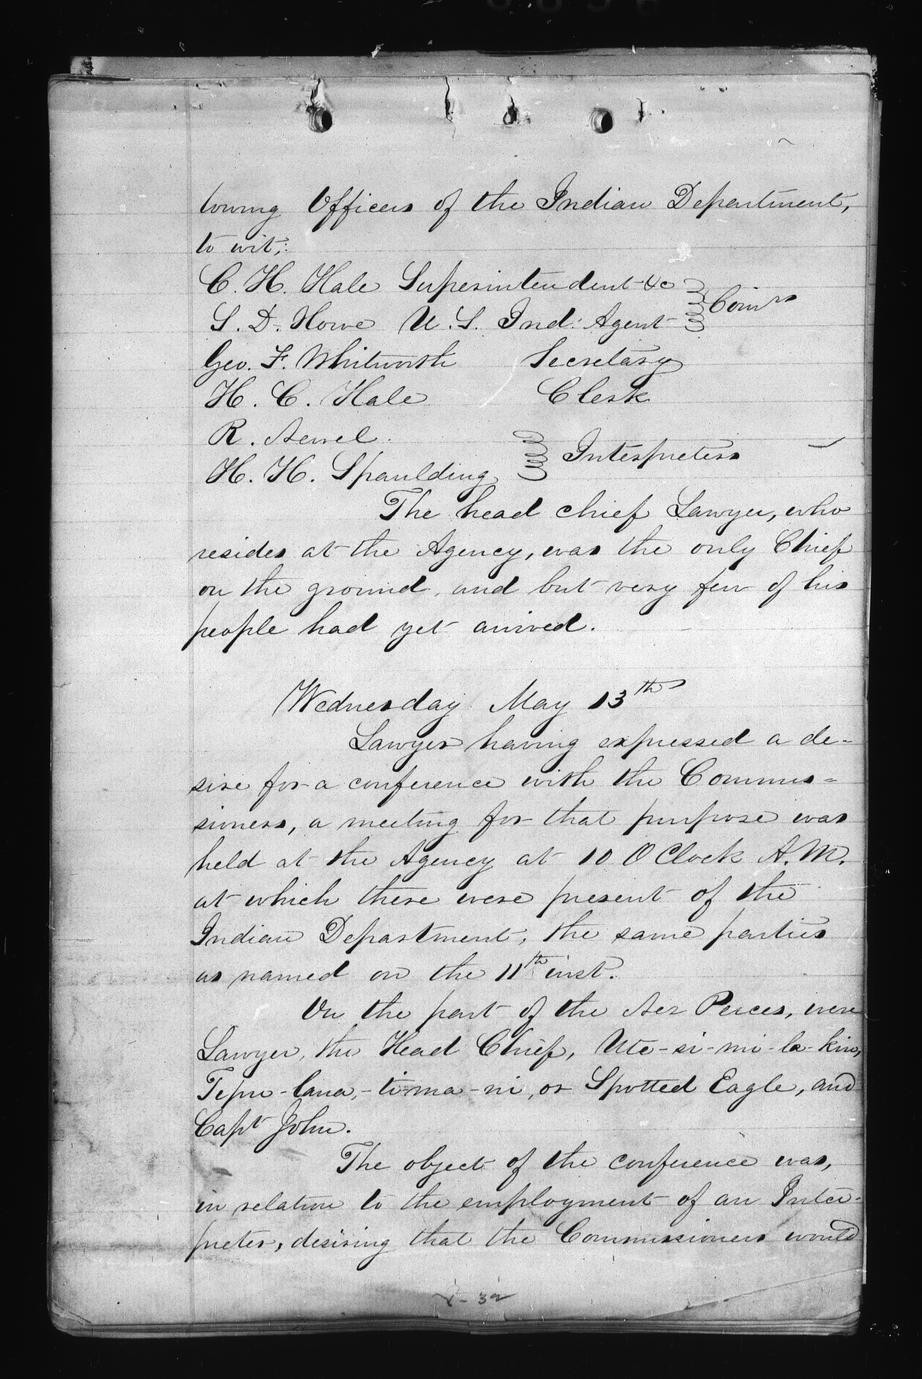 lowing Officers of the Indian Department,
to wit;
C. H. Hale Superintendent &c
S. D. Howe U. S. Ind. Agent Comrs
Geo. F. Whitworth Secretary
H. C. Hale Clerk
R. Newel.
H. H. Spaulding Interpreters
The head chief Lawyer, who
resides at the Agency, was the only Chief
on the ground, and but very few of his
people had yet arrived.
Wednesday May 13th
Lawyer having expressed a de-
sire for a conference with the Commis=
sioners, a meeting for that purpose was
held at the Agency at 10 OClock A.M.
at which there were present of the
Indian Department, the same parties
as named on the 11th inst.
On the part of the Nez Perces, were
Lawyer, the Head Chief, Ute-si-mi-le-kin,
ti-ma-ni, or Spotted Eagle, and
Capt John.
The object of the conference was,
in relation to the employment of an Inter-
preter, desiring that the Commissioners would